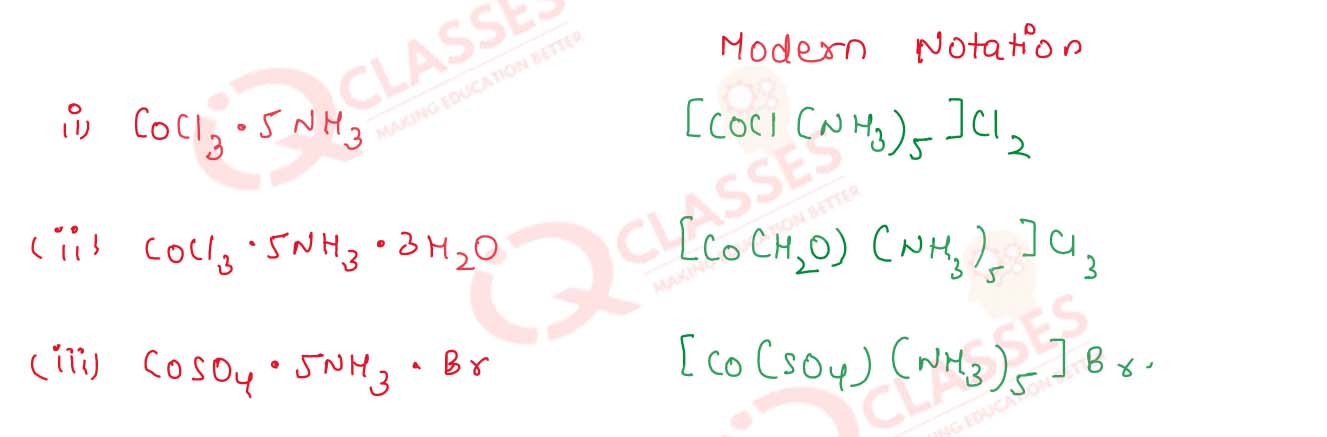 Modern Notation
i) CoCl₃ · 5 NH₃ [COCl (NH₃)₅]Cl₂
(ii) CoCl₃ · 5NH₃ · 3H₂O [Co(H₂O) (NH₃)₅]Cl₃
(iii) COSO₄ · 5NH₃ · Br [Co(SO₄) (NH₃)₅]Br.
QCLASSES
MAKING EDUCATION BETTER
QCLASSES
MAKING EDUCATION BETTER
QCLASSES
MAKING EDUCATION BETTER